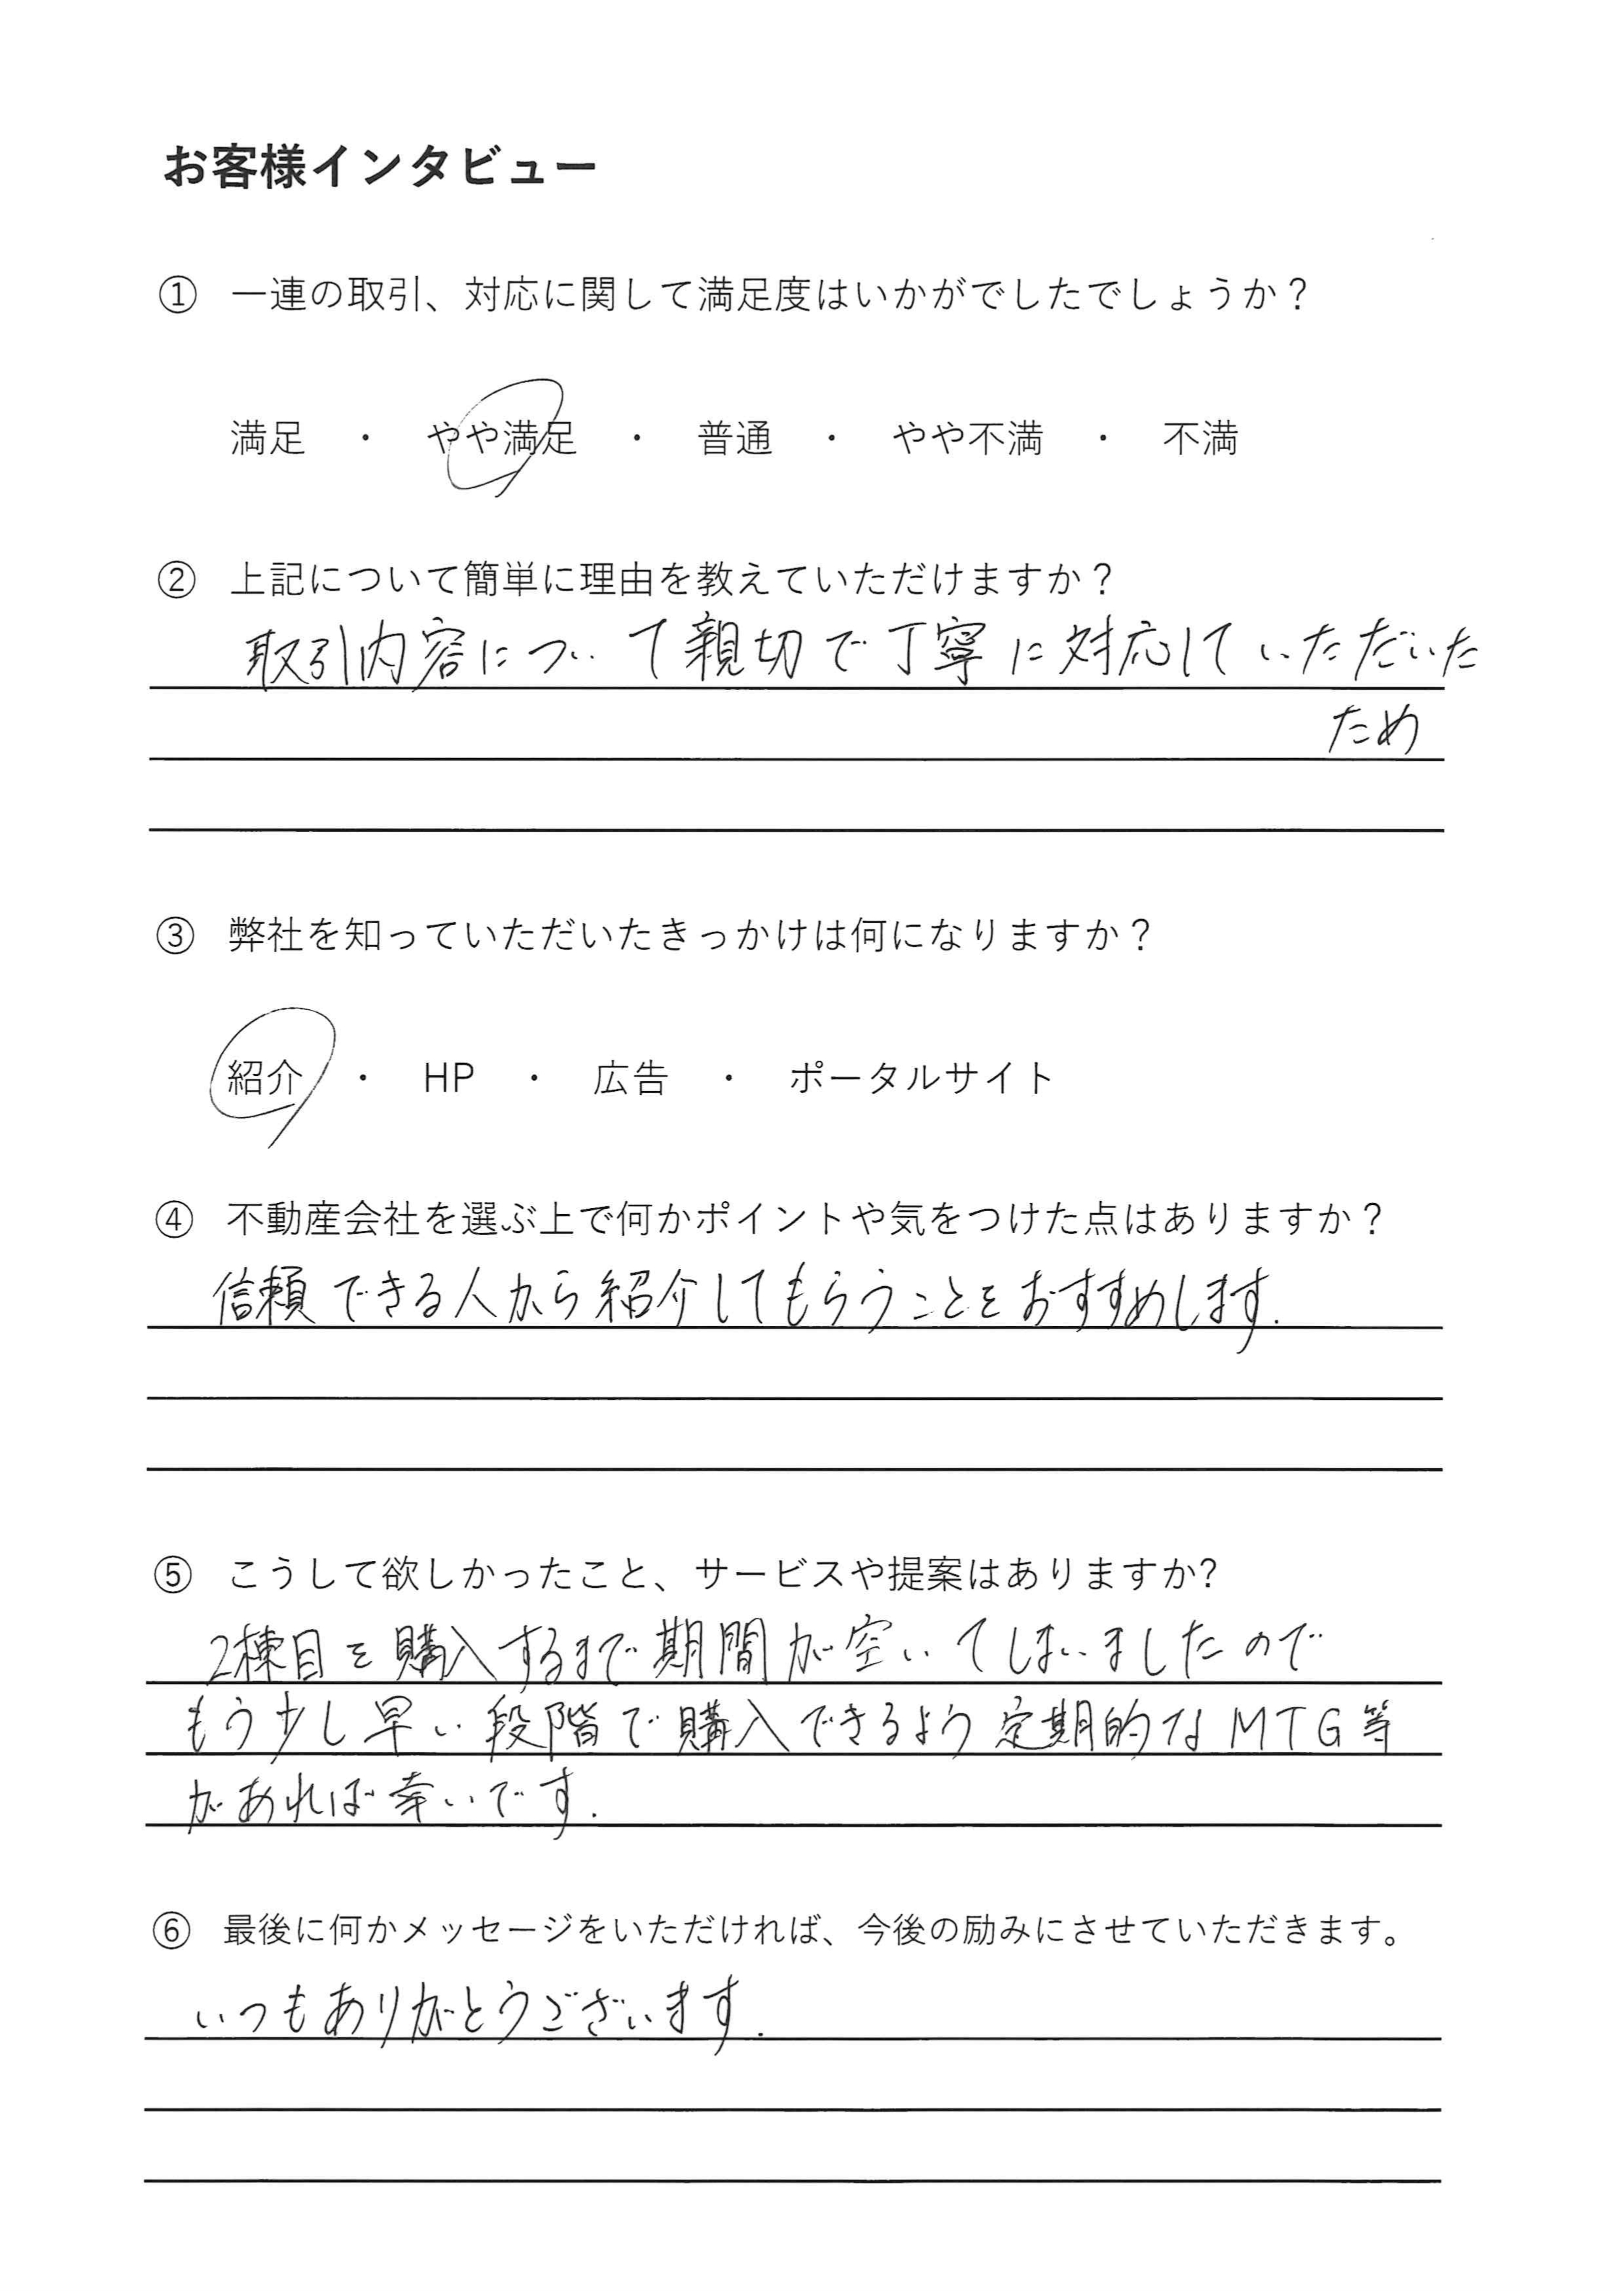 お客様インタビュー
① 一連の取引、対応に関して満足度はいかがでしたでしょうか？
満足 ・ やや満足 ・ 普通 ・ やや不満 ・ 不満
② 上記について簡単に理由を教えていただけますか？
取引内容について親切で丁寧に対応していただいた
ため
③ 弊社を知っていただいたきっかけは何になりますか？
紹介 ・ HP ・ 広告 ・ ポータルサイト
④ 不動産会社を選ぶ上で何かポイントや気をつけた点はありますか？
信頼できる人から紹介してもらうことをおすすめします.
⑤ こうして欲しかったこと、サービスや提案はありますか?
2棟目を購入するまで期間が空いてしまいましたので
もう少し早い段階で購入できるよう定期的なMTG等
があれば幸いです.
⑥ 最後に何かメッセージをいただければ、今後の励みにさせていただきます。
いつもありがとうございます.